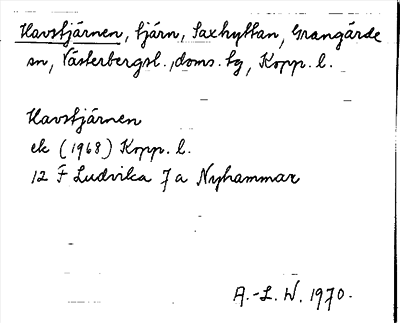 Havstjärnen, tjärn, Saxhyttan, Grangärde
sn, Västerbergsl., doms. tg, Kopp. l.
Havstjärnen
ek (1968) Kopp. l.
12 F Ludvika 7 a Nyhammar
A.-L. W. 1970.